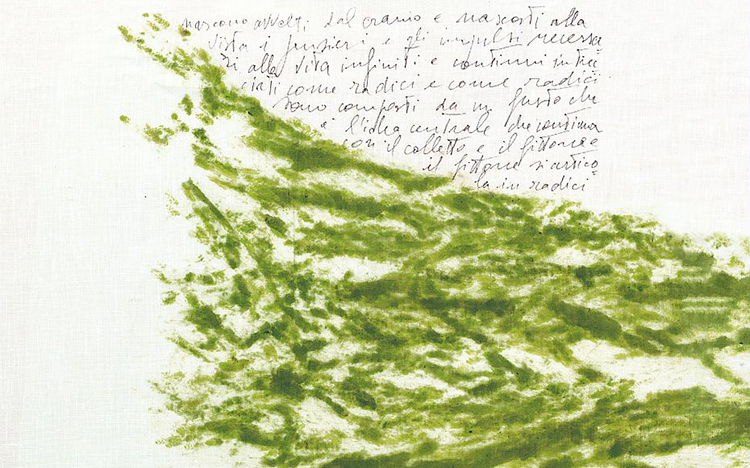 nascono avvolti dal cranio e nascosti alla
vista i pensieri e gli impulsi necessa
ri alla vita infiniti e continui intrec
ciati come radici e come radici
sono composti da un fusto che
è l'idea centrale che continua
con il colletto e il fittone e
il fittone si artico
la in radici